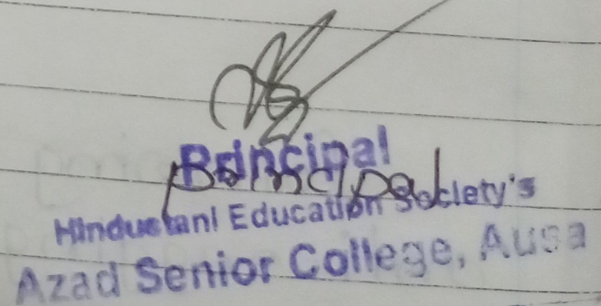 Principal
Principal
Hindustani Education Society's
Azad Senior College, Ausa